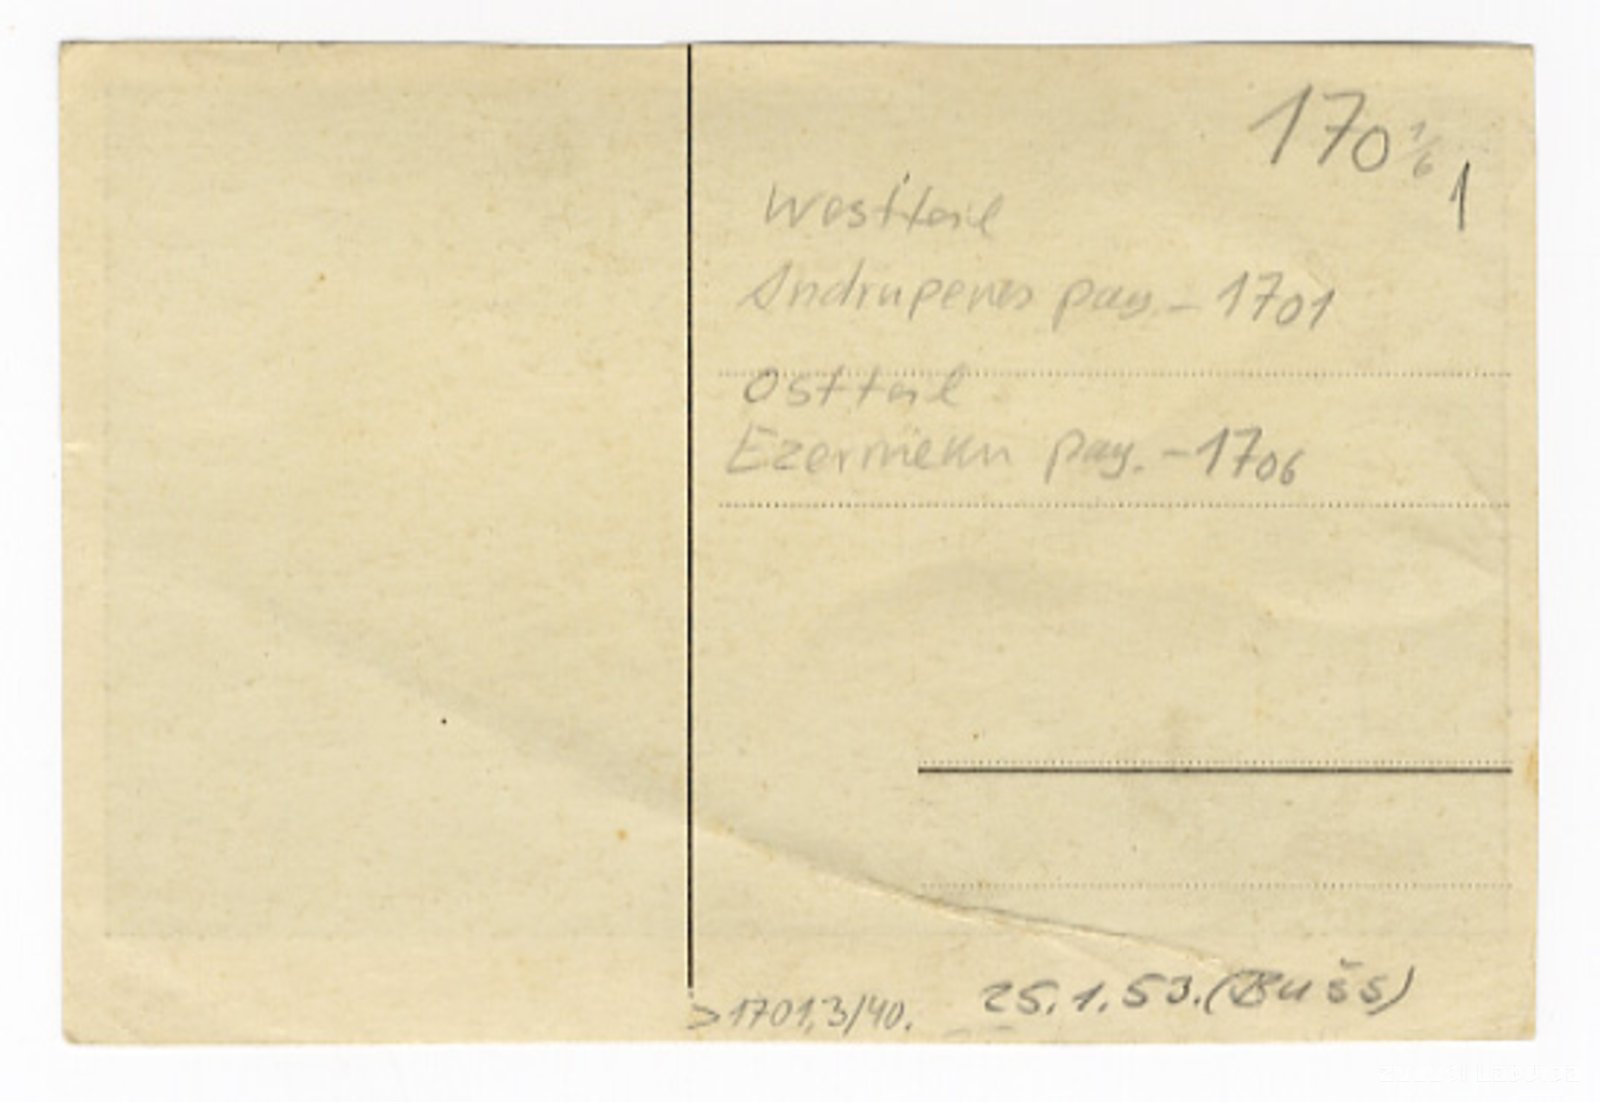 170 1/6
1
Westteil
Andrupenes pag. - 1701
Ostteil
Ezernieku pag. - 1706
>1701,3/40.
25.1.53. (Bušs)